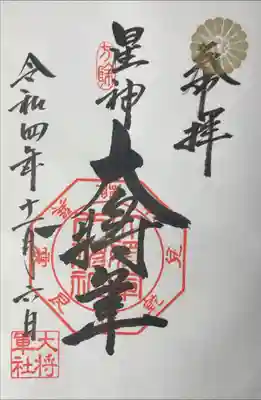 奉拝
星神
方除
大将軍
令和四年十一月六日
大将
軍社